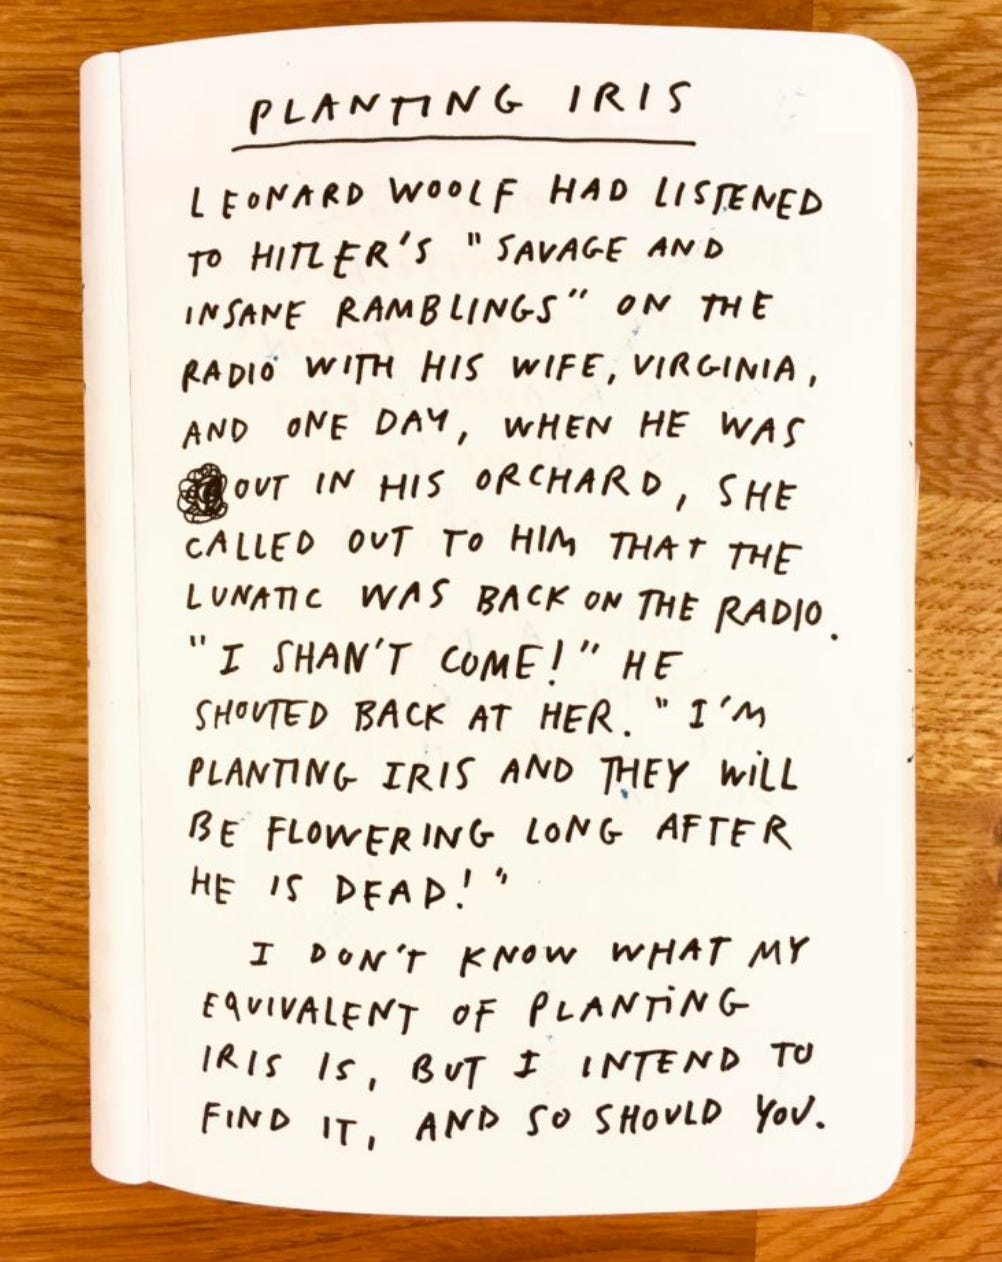 PLANTING IRIS
LEONARD WOOLF HAD LISTENED
TO HITLER'S "SAVAGE AND
INSANE RAMBLINGS" ON THE
RADIO WITH HIS WIFE, VIRGINIA,
AND ONE DAY, WHEN HE WAS
OUT IN HIS ORCHARD, SHE
CALLED OUT TO HIM THAT THE
LUNATIC WAS BACK ON THE RADIO.
"I SHAN'T COME!" HE
SHOUTED BACK AT HER. "I'M
PLANTING IRIS AND THEY WILL
BE FLOWERING LONG AFTER
HE IS DEAD!"
I DON'T KNOW WHAT MY
EQUIVALENT OF PLANTING
IRIS IS, BUT I INTEND TO
FIND IT, AND SO SHOULD YOU.